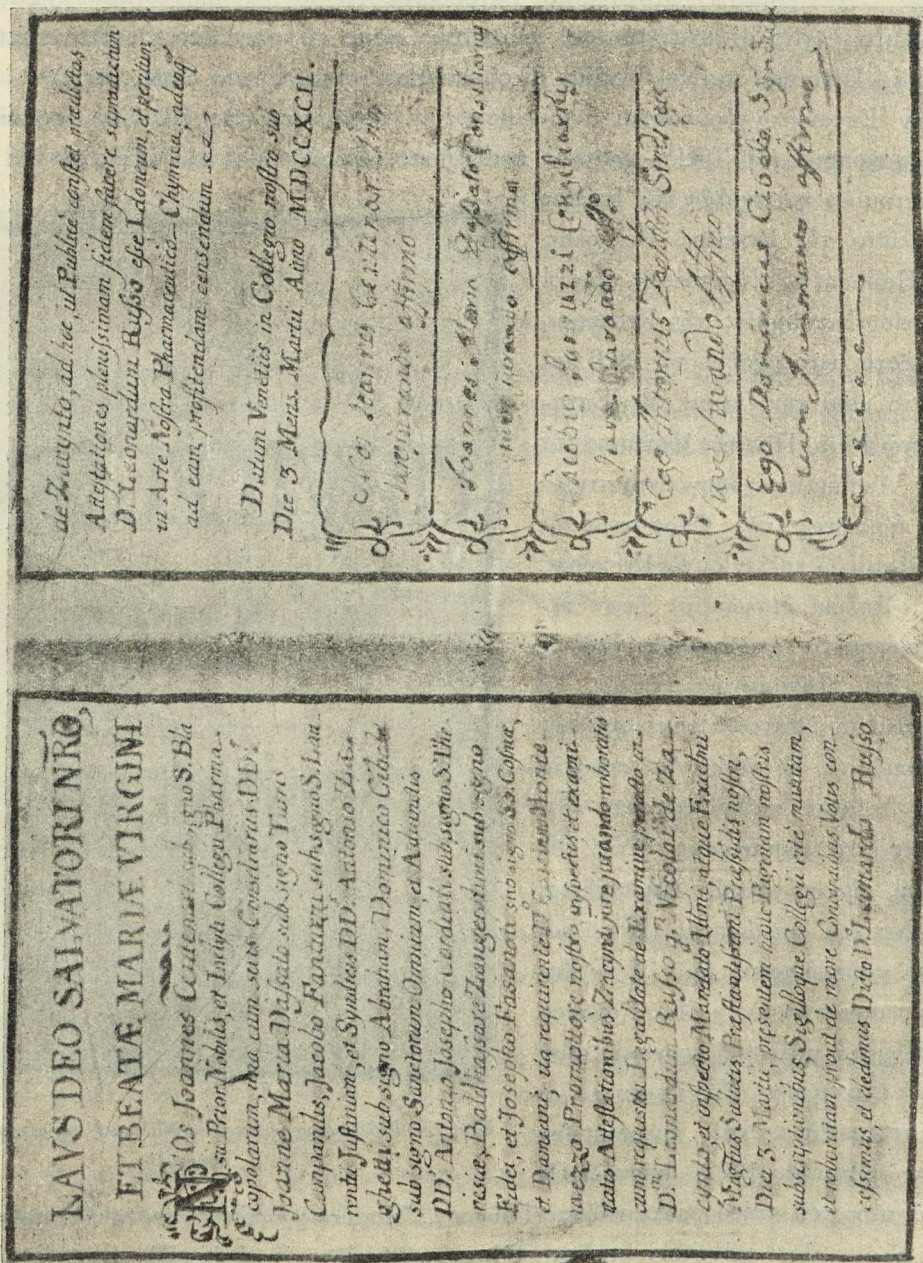 LAVS DEO SALVATORI NRO,
ET BEATÆ MARIÆ VIRGINI
NOs Joannes sub signo S. Bla
sii Prior Nobilis, et Inclyti Collegii Pharma-
copolarum, una cum suis Consiliariis DD.
Joanne Maria Dassato sub signo Turis
Campanulæ, Jacobo sub signo S. Lau
rentii Justiniani, et Syndicis DD. Antonio
ghetti sub signo Abraham, Dominico
sub signo Sanctorum Omnium, et Adiunctis
DD. Antonio Josepho Cordialis sub signo S. The-
resiæ, Baldhassare sub signo
Fidei, et Josepho Fasaneti sub signo SS. Cosmæ,
et Damiani, ita requirente D.
Promottore nostro inspectis, et exami-
natis Adtestationibus Zacynti jurejurando roboratis
cum requisita Legalitate de Examine peracto an.
D.m Leonardum Russo q. D. Nicolai de Za-
cynto, et asspecto Mandato Ultimi, atque Excelmi
Mag.tus Salutis Præstantissimi Præsidis nostri,
Die 3. Martii, præsentem hanc Paginam nostris
subscriptionibus, Sigilloque Collegii rite munitam,
et roboratam prout de more Concordibus Votis con-
cessimus, et dedimus Dicto D. Leonardo Russo
de Zacynto, ad hoc, ut Publice constet prædictas
Adtestationes plenissimam fidem facere supradictum
D. Leonardum Russo esse Idoneum, et peritum
in Arte Nostra Pharmaceutico-Chymica, adeoq
ad eam profitendam censendum
Datum Venetiis in Collegio nostro sub
Die 3 Mens. Martii Anno MDCCXCII.
jurejurando affirmo
Joannes Maria Dassato Consiliarius
jurejurando affirmo
Jacobus Consiliarius
jure jurando affo
Ego
jure jurando affmo
Ego Dominicus
jurejurando affirmo